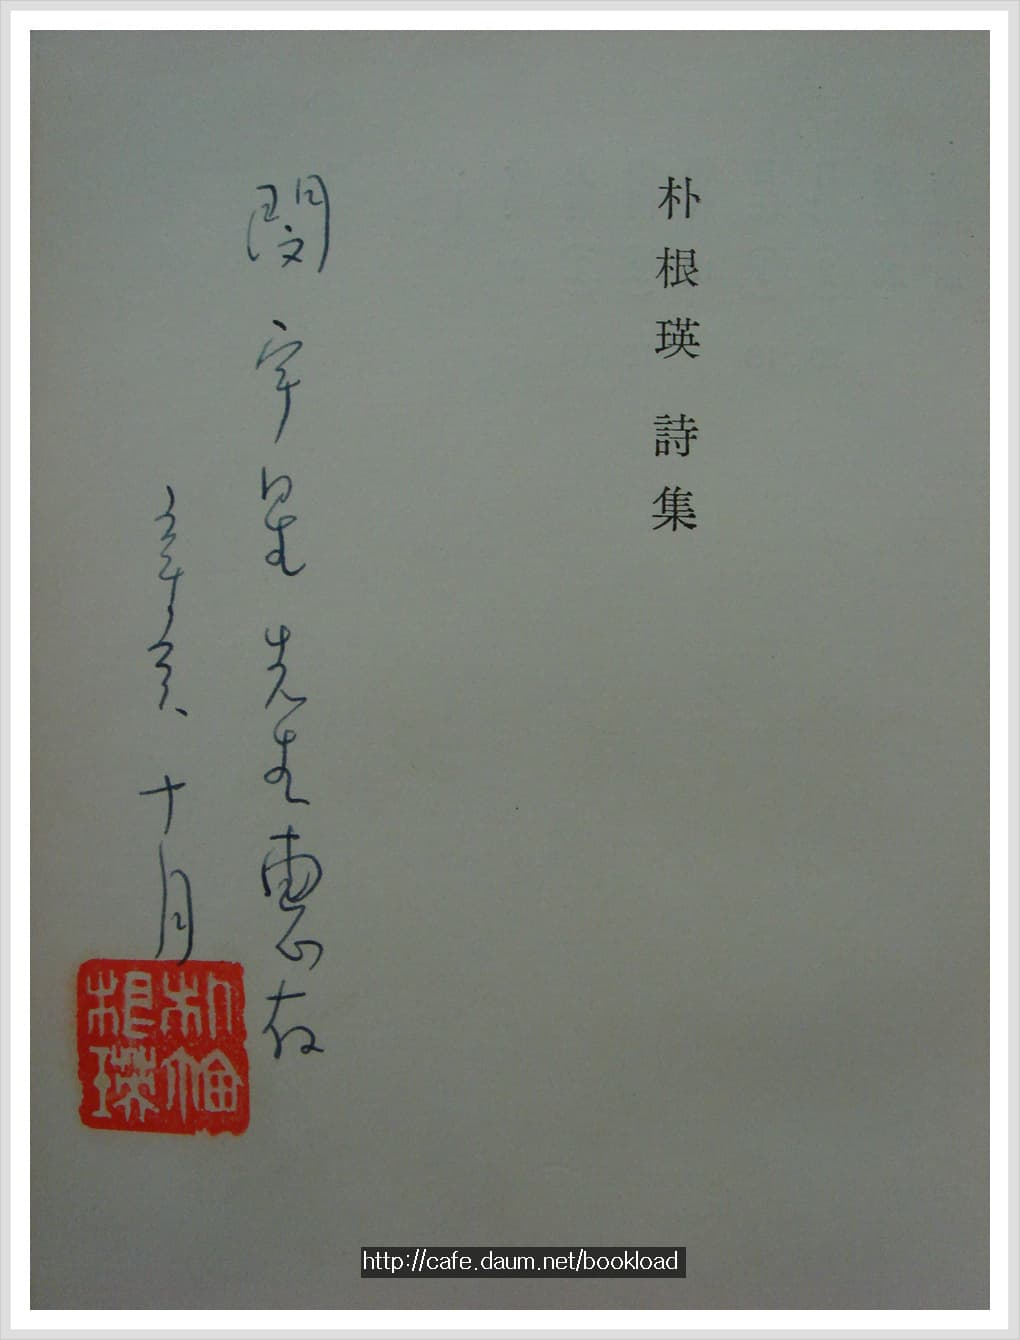 朴根瑛 詩集
閔宇星 先生 惠存
辛亥 十月
http://cafe.daum.net/bookload